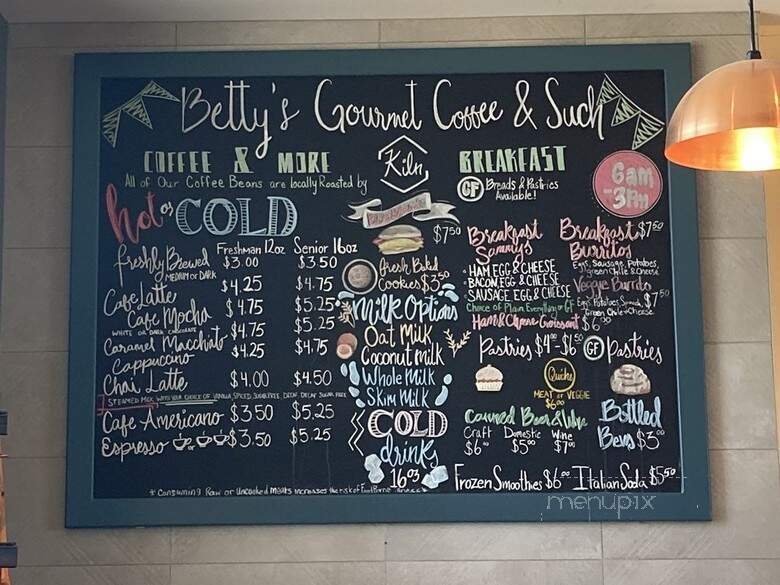 Betty's Gourmet Coffee & Such
COFFEE & MORE
All of Our Coffee Beans are locally Roasted by
Kiln
hot or COLD
Freshman 12oz Senior 16oz
freshly Brewed $3.00 $3.50
MEDIUM OR DARK
Cafe Latte $4.25 $4.75
Cafe Mocha $4.75 $5.25
WHITE OR DARK CHOCOLATE
Caramel Macchiato $4.75 $5.25
Cappuccino $4.25 $4.75
Chai Latte $4.00 $4.50
STEAMED MILK WITH YOUR CHOICE OF VANILLA, SPICED, SUGAR FREE, DECAF, DECAF SUGAR FREE
Cafe Americano $3.50 $5.25
Espresso or $3.50 $5.25
* Consuming Raw or Uncooked Meats increases the risk of
$7.50
Fresh Baked
Cookies $3.50
Milk Options
Oat Milk
Coconut Milk
Whole Milk
Skim Milk
COLD
drinks
16oz
BREAKFAST
GF Breads & Pastries
Available!
6am
-3pm
Breakfast
Sammys
HAM EGG & CHEESE
BACON, EGG & CHEESE
SAUSAGE EGG & CHEESE
Choice of Plain Everything or GF
Ham & Cheese Croissant $6.00
Breakfast $7.50
Burritos
Eggs, Sausage, Potatoes,
green Chile & Cheese
Veggie Burrito
Eggs, Potatoes, Spinach, $7.50
Green Chile & Cheese
Pastries $4-$6.50
GF Pastries
Quiche
MEAT or VEGGIE
$6.00
Canned Beer & Wine
Craft Domestic Wine
$6.00 $5.00 $7.00
Bottled
Bevs $3.00
Frozen Smoothies $6.00 Italian Soda $5.50
menupix